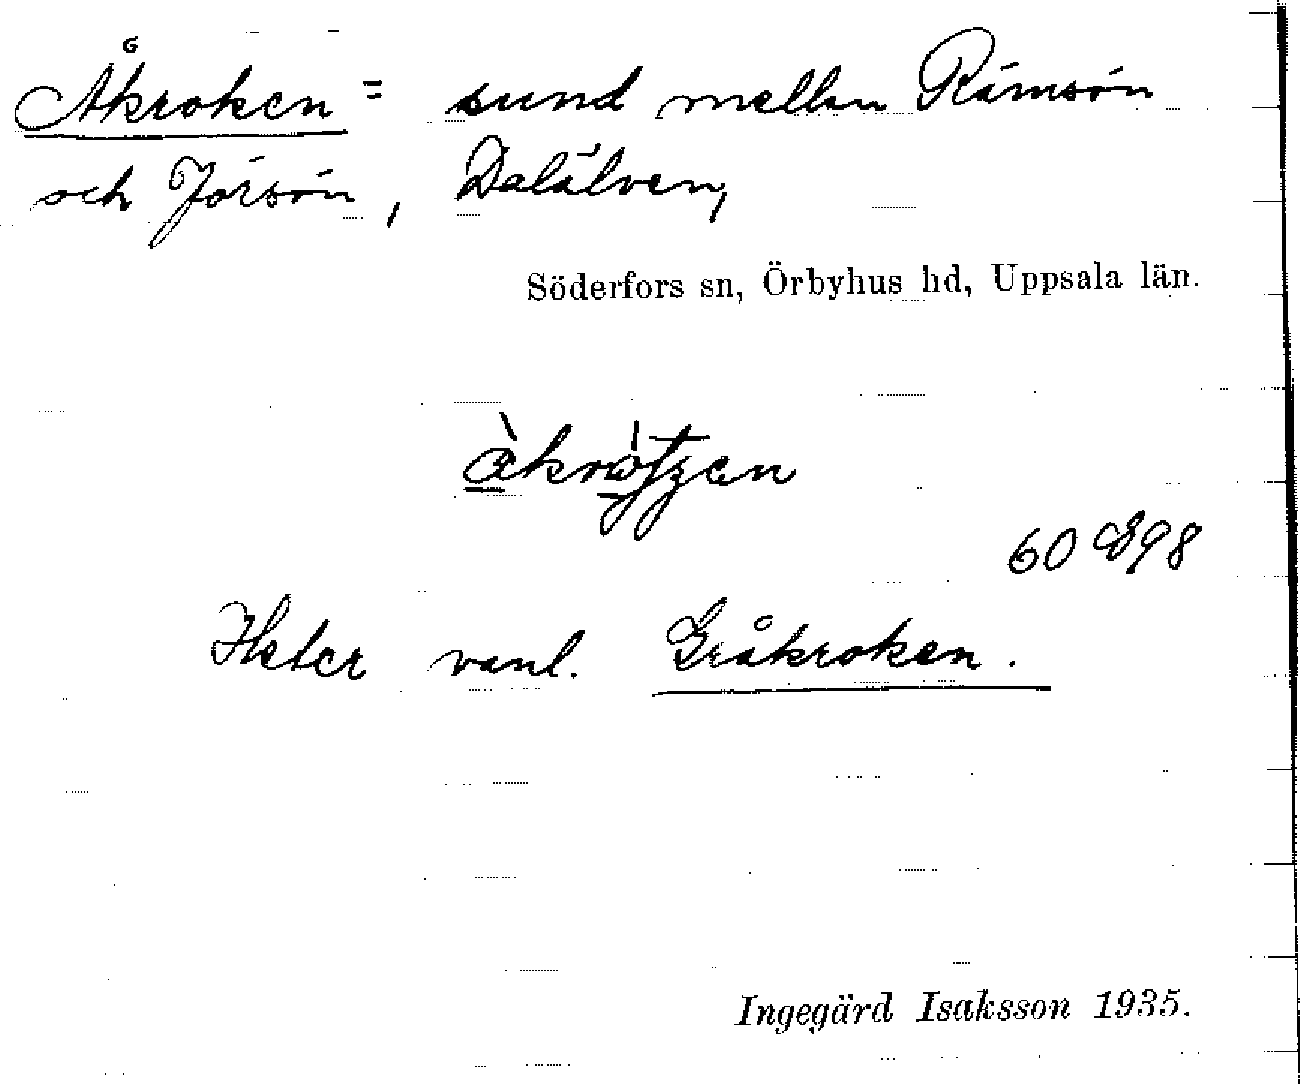 Åkroken = sund mellan Rämsön
och Jörsön, Dalälven,
Söderfors sn, Örbyhus hd, Uppsala län.
60 E 98
Heter vanl. Gråkroken.
Ingegärd Isaksson 1935.